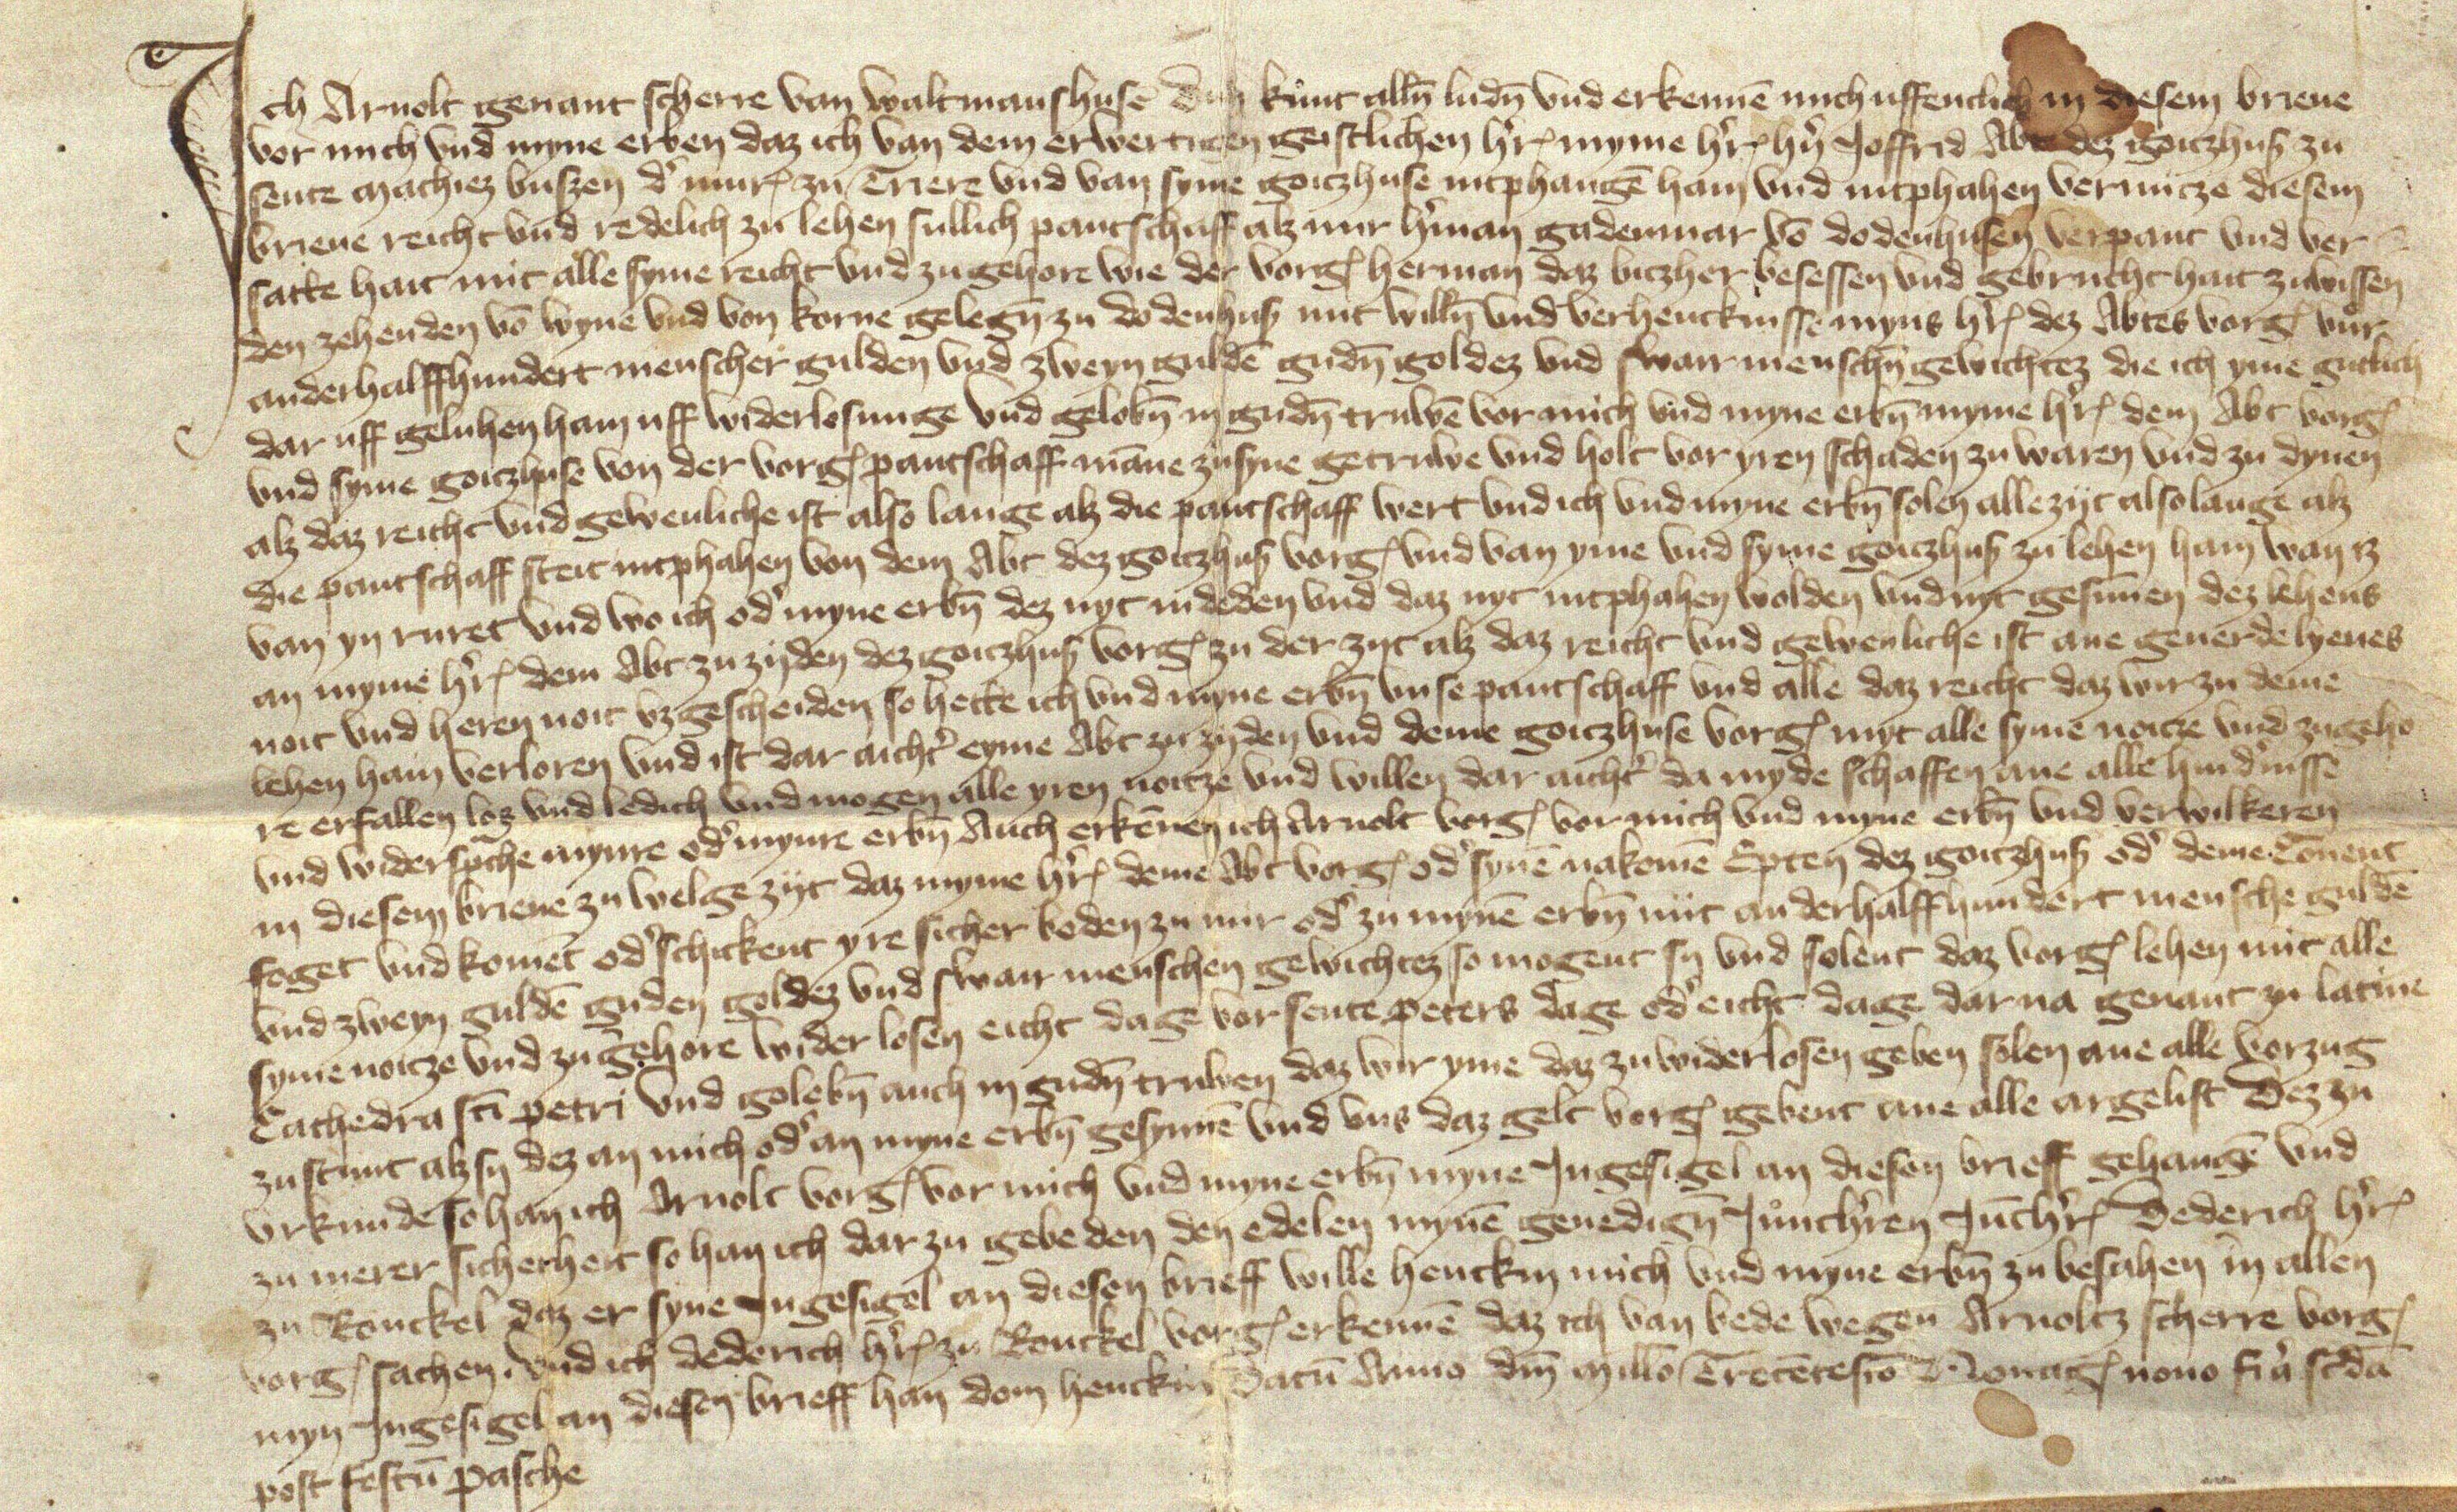 Ich Arnolt genant scherre van waltmanshusē dun kunt alln̄ ludn̄ vnd erkennē mich uffenclich in diesem brieue
vor mich vnd myne erben daz ich van dem erwertigen geistlichen h'rꝭ myme h'rꝭ h'n Joffrid Abt dez goitzhusꝭ zu
sente Mathiez buszen d' murꝭ zu Triere vnd van syme goitzhuse intphangē hain vnd intphahen vermitze diesem
brieue reicht vnd redelich zu lehen sullich pantschaff alz mir h'man gademar vō dodenhusen verpant vnd ver
satte hait mit alle syme reicht vnd zugehore wie der vorgꝭ herman daz bitzher besessen vnd gebrucht hait zuwissen
den zehenden vō wyne vnd von korne gelegn̄ zu dodenhusꝭ mit willn̄ vnd verhencknisse myns h'rꝭ dez Abtes vorgꝭ vur
anderhalffhundert menscher gulden vnd zweyn guldē gudn̄ goldez vnd swair menschn̄ gewichtez die ich yme gutlich
dar uff geluhen hain uff widerlosunge vnd gelobn̄ in gudn̄ truwē vor mich vnd myne erbn̄ myme h'rꝭ dem Abt vorgꝭ
vnd syme goitzhuse von der vorgꝭ pantschaff māne zu syne getruwe vnd holt vor yren schaden zu waren vnd zu dynen
alz daz reicht vnd gewenliche ist also lange alz die pantschaff wert vnd ich vnd myne erbn̄ solen alle zijt also lange alz
die pantschaff steit intphahen von dem Abt dez goitzhusꝭ vorgꝭ vnd van yme vnd syme goitzhusꝭ zu lehen hain wan iz
van yn ruret vnd wo ich od' myne erbn̄ dez nyt indeden vnd daz nyt intphahen wolden vnd nyt gesūnen dez lehens
an myme h'rꝭ dem Abt zu zijden dez goitzhusꝭ vorgꝭ zu der zijt alz daz reicht vnd gewenliche ist ane geuerde lyenes
noit vnd heren noit vzgescheiden so hette ich vnd myne erbn̄ vnse pantschaff vnd alle daz reicht daz wir zu deme
lehen hain verloren vnd ist dar aicht' eyme Abt zu zijden vnd deme goitzhuse vorgꝭ myt alle syme noitze vnd zugeho
re erfallen loz vnd ledich vnd mogen alle yren noitze vnd willen dar aicht' da myde schaffen ane alle hind'nisse
vnd widersp̄che mynre od' mynre erbn̄ Auch erkēnen ich Arnolt vorgꝭ vor mich vnd myne erbn̄ vnd verwilkeren
in diesem brieue zu welge zijt daz myme h'rꝭ deme Abt vorgꝭ od' synē nakomē Epten dez goitzhusꝭ od' deme Cōuent
foget vnd komēt od' schickent yre sicher boden zu mir od' zu mynē erbn̄ mit anderhalffhundert mensche guldē
vnd zweyn guldē guden goldez vnd swair menschen gewichtez so mogent sij vnd solent daz vorgꝭ lehen mit alle
syme noitze vnd zugehore wider losen eicht dage vor sente peters dage od' eicht dage dar na genant zu latine
Cathedra sc̄i petri vnd golebn̄ auch in gudn̄ truwen daz wir yme daz zu widerlosen geben solen ane alle vorzug
zustunt alz sij dez an mich od' an myne erbn̄ gesynnē vnd vns daz gelt vorgꝭ gebent ane alle argelist Dez zu
vrkunde so han ich Arnolt vorgꝭ vor mich vnd myne erbn̄ myne Ingesigel an diesen brieff gehangē vnd
zu merer sicherheit so han ich dar zu gebeden den edelen mynē genedign̄ Junch'ren Jūch'rꝭ Dederich h'rꝭ
zu Ronckel daz er syne Ingesigel an diesen brieff wille henckin mich vnd myne erbn̄ zu besahen in allen
vorgꝭ sachen. vnd ich dederich h'rꝭ zu Ronckel vorgꝭ erkennē daz ich van bede wegen Arnoltz scherre vorgꝭ
myn Ingesigel an diesen brieff han dom henckin Datū Anno dn̄i Mill'o Trecētesīo Nonagꝭ nono fr̄a sc̄da
post festū pasche